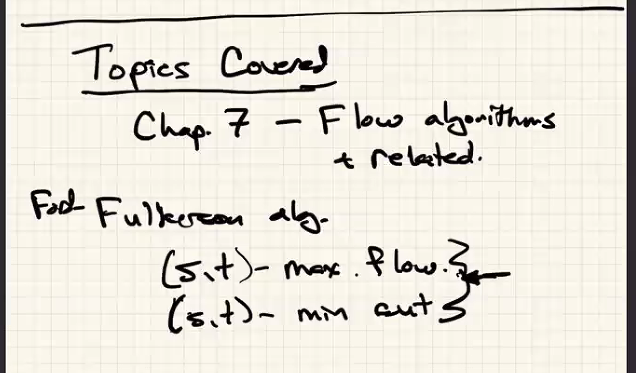 Topics Covered
Chap. 7 - Flow algorithms
+ related.
Ford-Fulkerson alg.
(s,t)- max. flow.
(s,t)- min cut